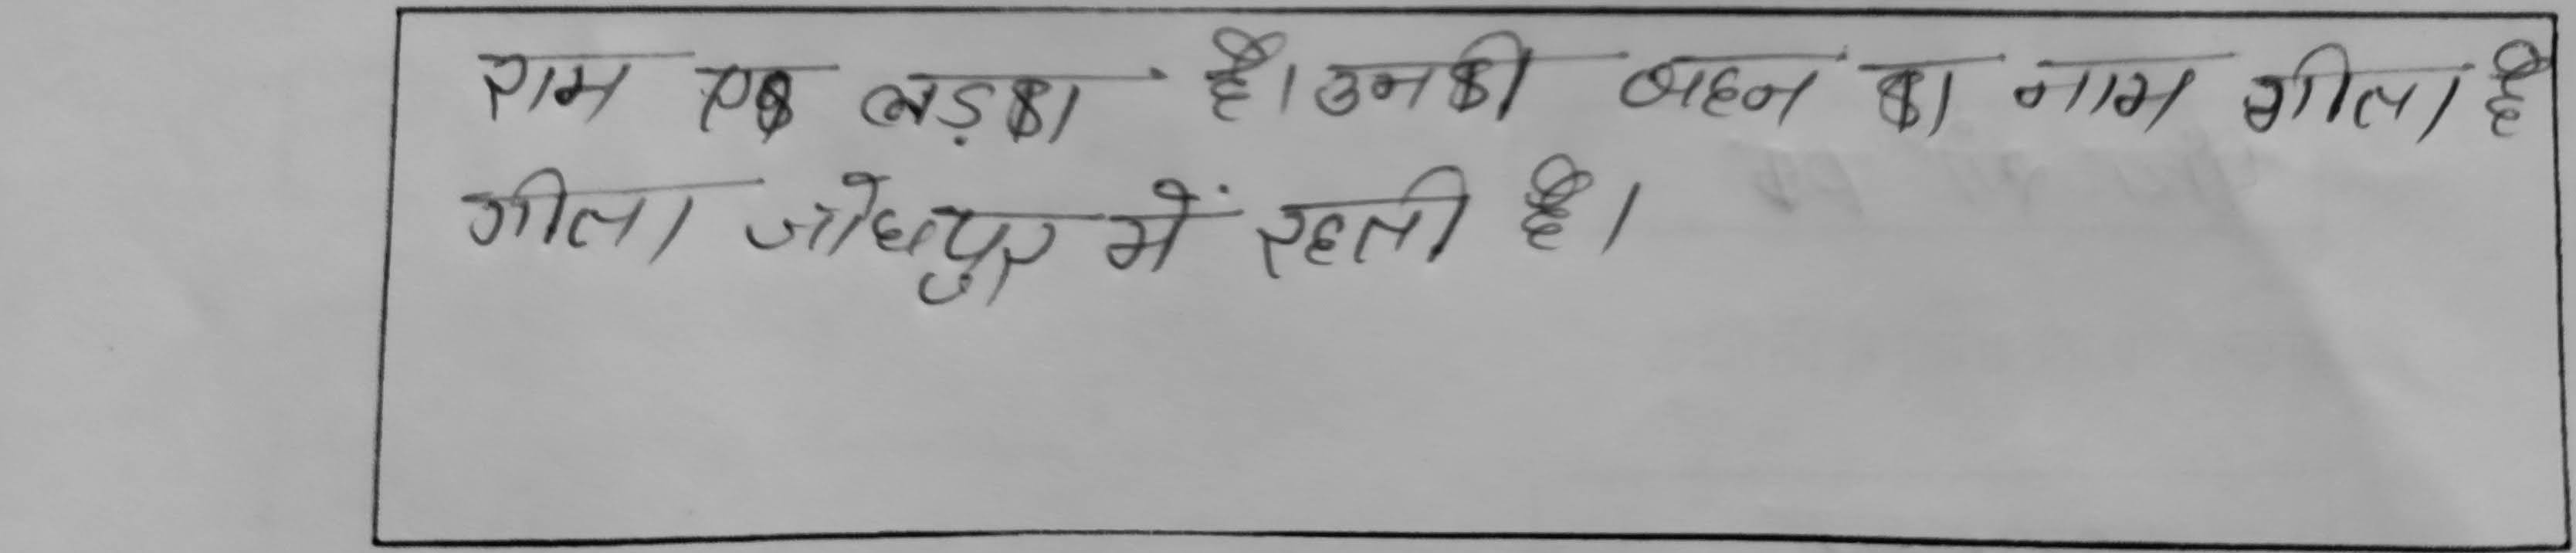 राम एक लड़का है। उनकी बहन का नाम गीता है
गीता जोधपुर में रहती है।